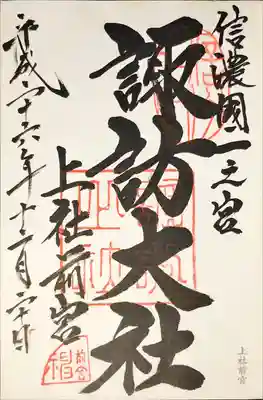 信濃國一之宮
諏訪大社
上社前宮
平成二十六年十二月二十日
上社前宮